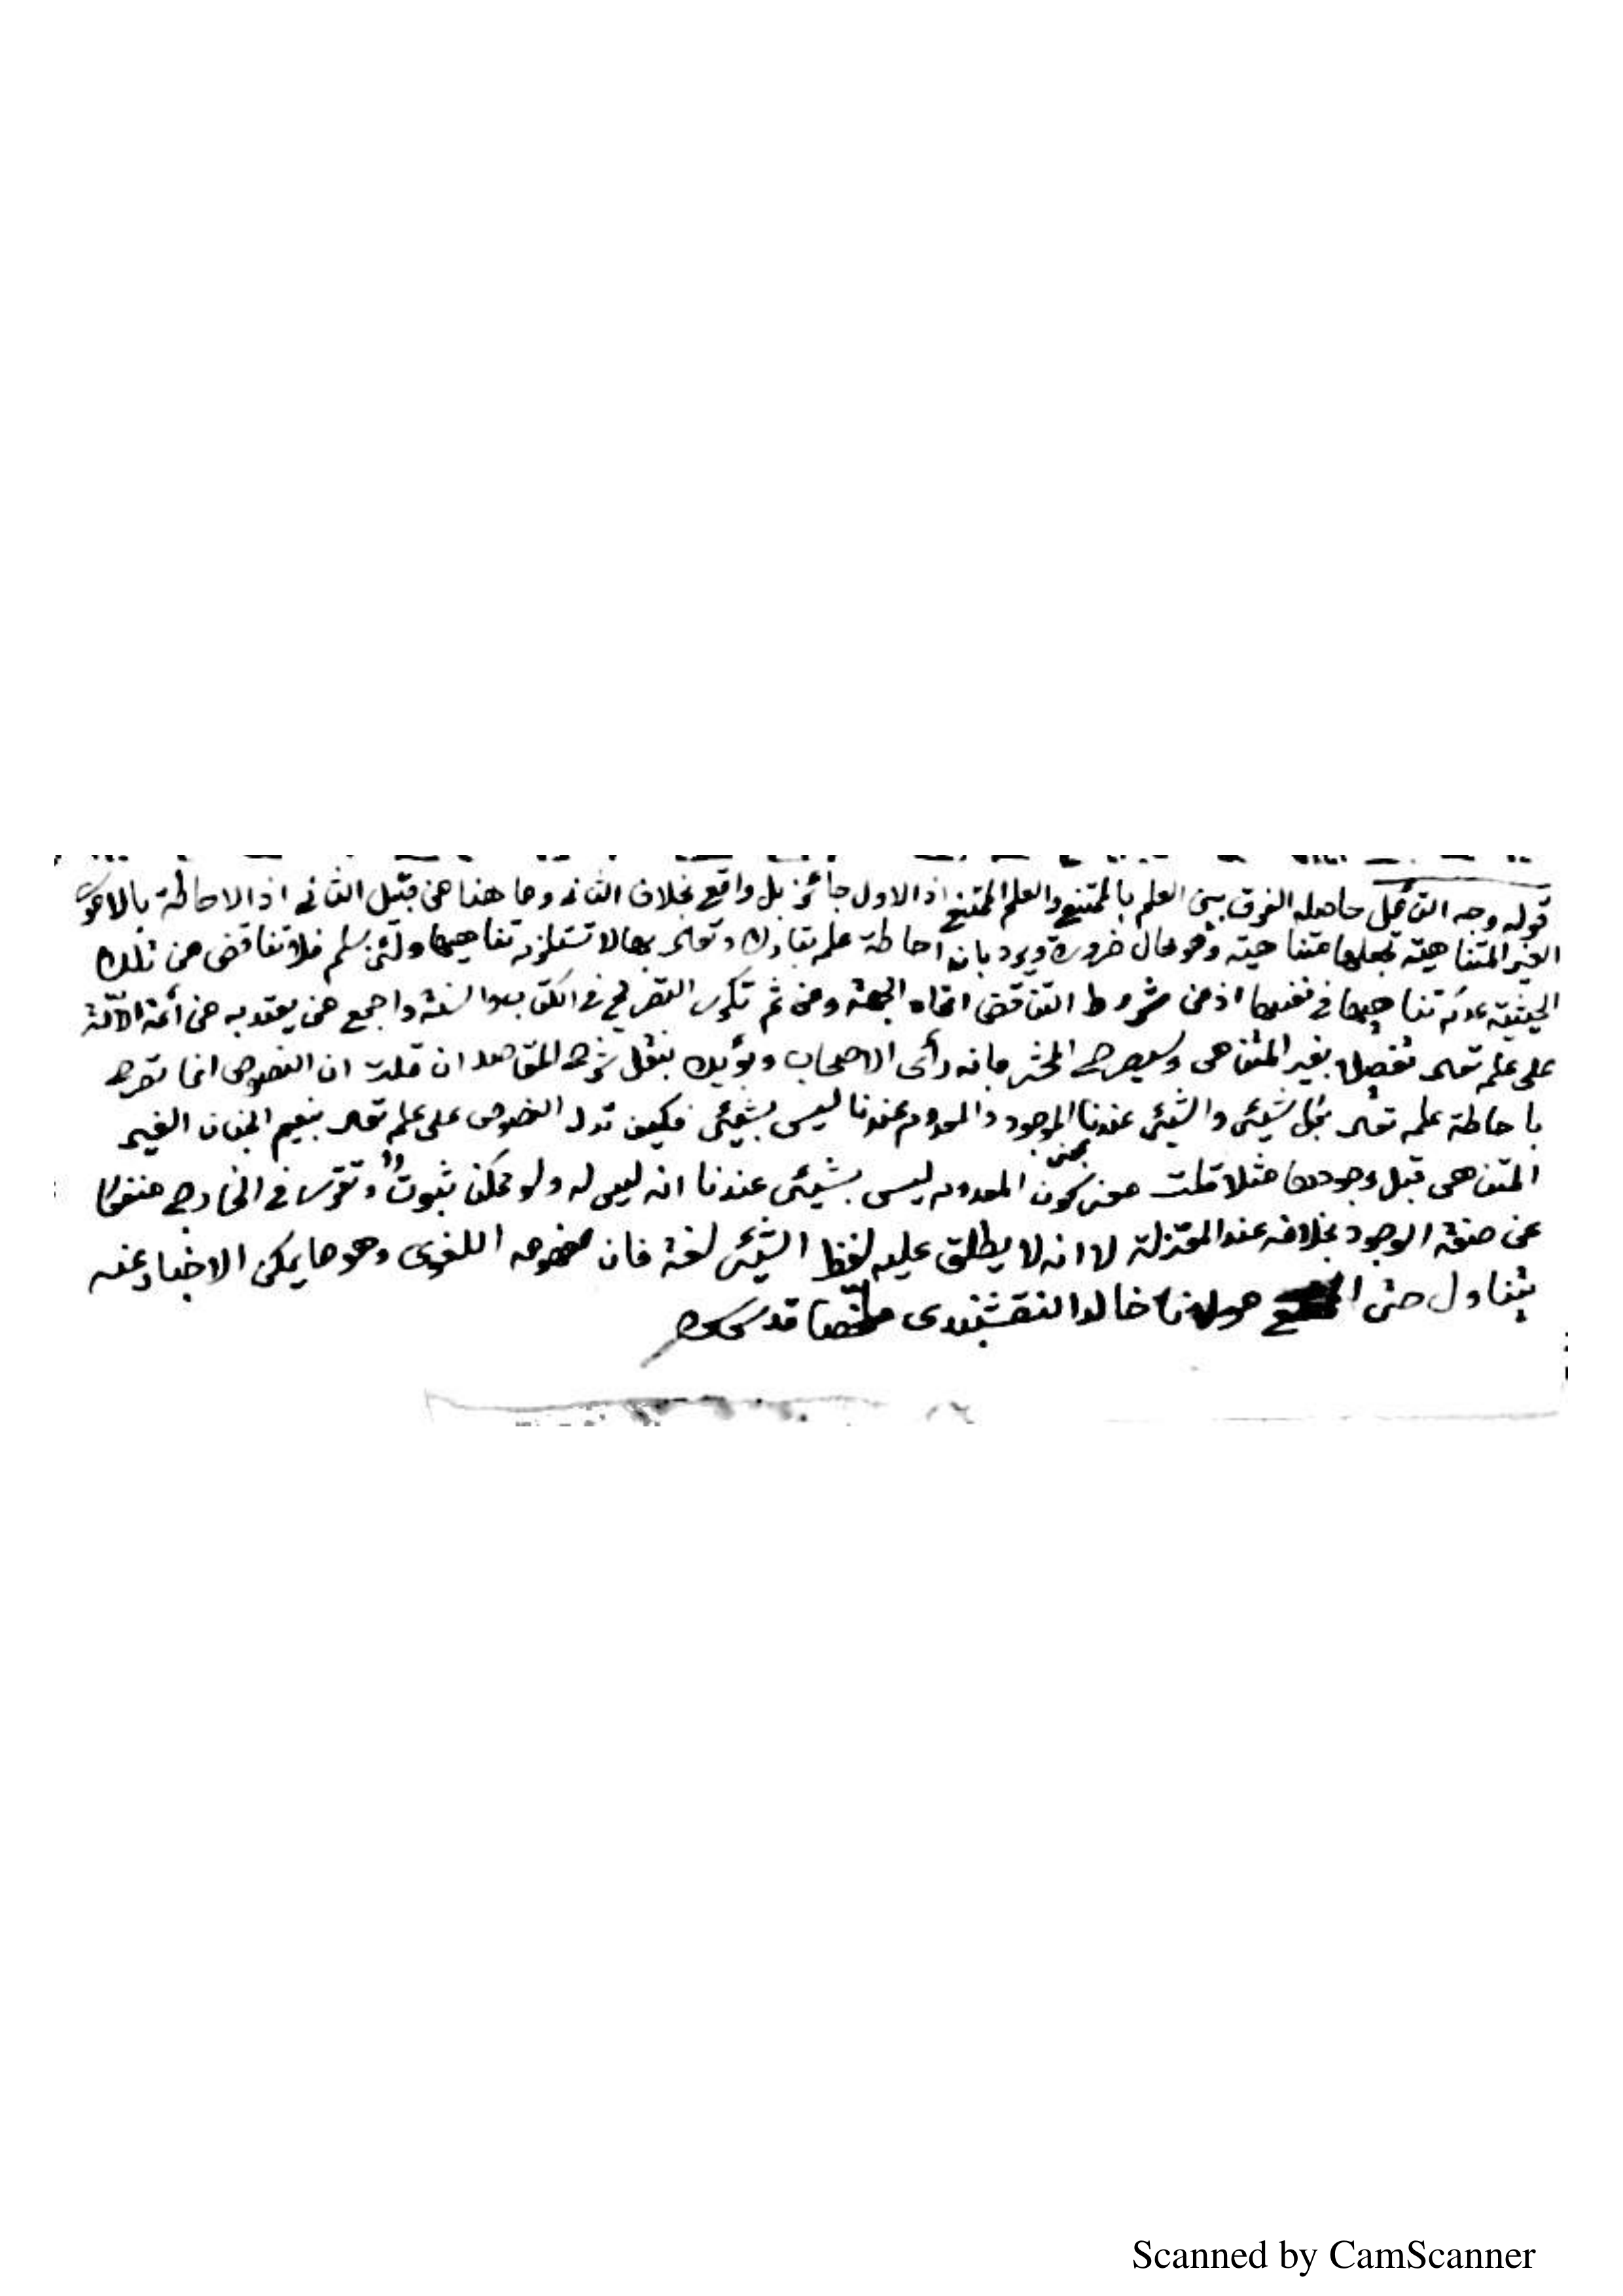 قوله وجه التأمل حاصله الفرق بين العلم بالممتنع والعلم الممتنع اذ الاول جائز بل واقع بخلاف الثانى وما هنا من قبيل الثانى اذ الاحاطة بالامور
الغير المتناهية تجعلها متناهية وهو محال ضرورة ويرد بان احاطة علمه تبارك وتعالى بها لا تستلزم تناهيها ولئن سلم فلا تناقض من تلك
الحيثية تناهيها فى نفسها اذ من شروط التناقض اتحاد الجهة ومن ثم تكرر التصريح فى الكتاب والسنة واجمع من يعتد به من أئمة
على علمه تعالى تفصيلا بغير المتناهى وسيصرح المحشى بانه رأى الاصحاب ويؤيده بنقل شرح المقاصد ان قلت ان النصوص انما تصرح
باحاطة علمه تعالى بكل شيئى والشيئى عندنا الموجود والمعدوم عندنا ليس بشيئى فكيف تدل النصوص على علمه تعالى بنعيم الجنان الغير
المتناهى قبل وجودها مثلا قلت معنى كون المعدوم ليس بشيئى عندنا انه ليس له ولو ممكنا ثبوت وتقرر فى الخارج منفكا
عن صفة الوجود بخلافه عند المعتزلة لا انه لا يطلق عليه لفظ الشيئى لغة فان مفهومه اللغوى وهو ما يمكن الاخبار عنه
يتناول حتى مولانا خالد النقشبندى ملخصا قدس سره
Scanned by CamScanner